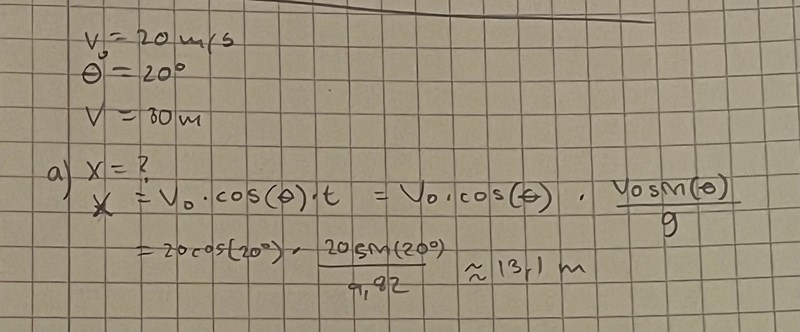 V₀ = 20 m/s
θ = 20°
V = 30 m
a) x = ?
x = V₀ · cos(θ) · t = V₀ · cos(θ) · V₀ sin(θ) / g
= 20 cos(20°) · 20 sin(20°) / 9,82 ≈ 13,1 m